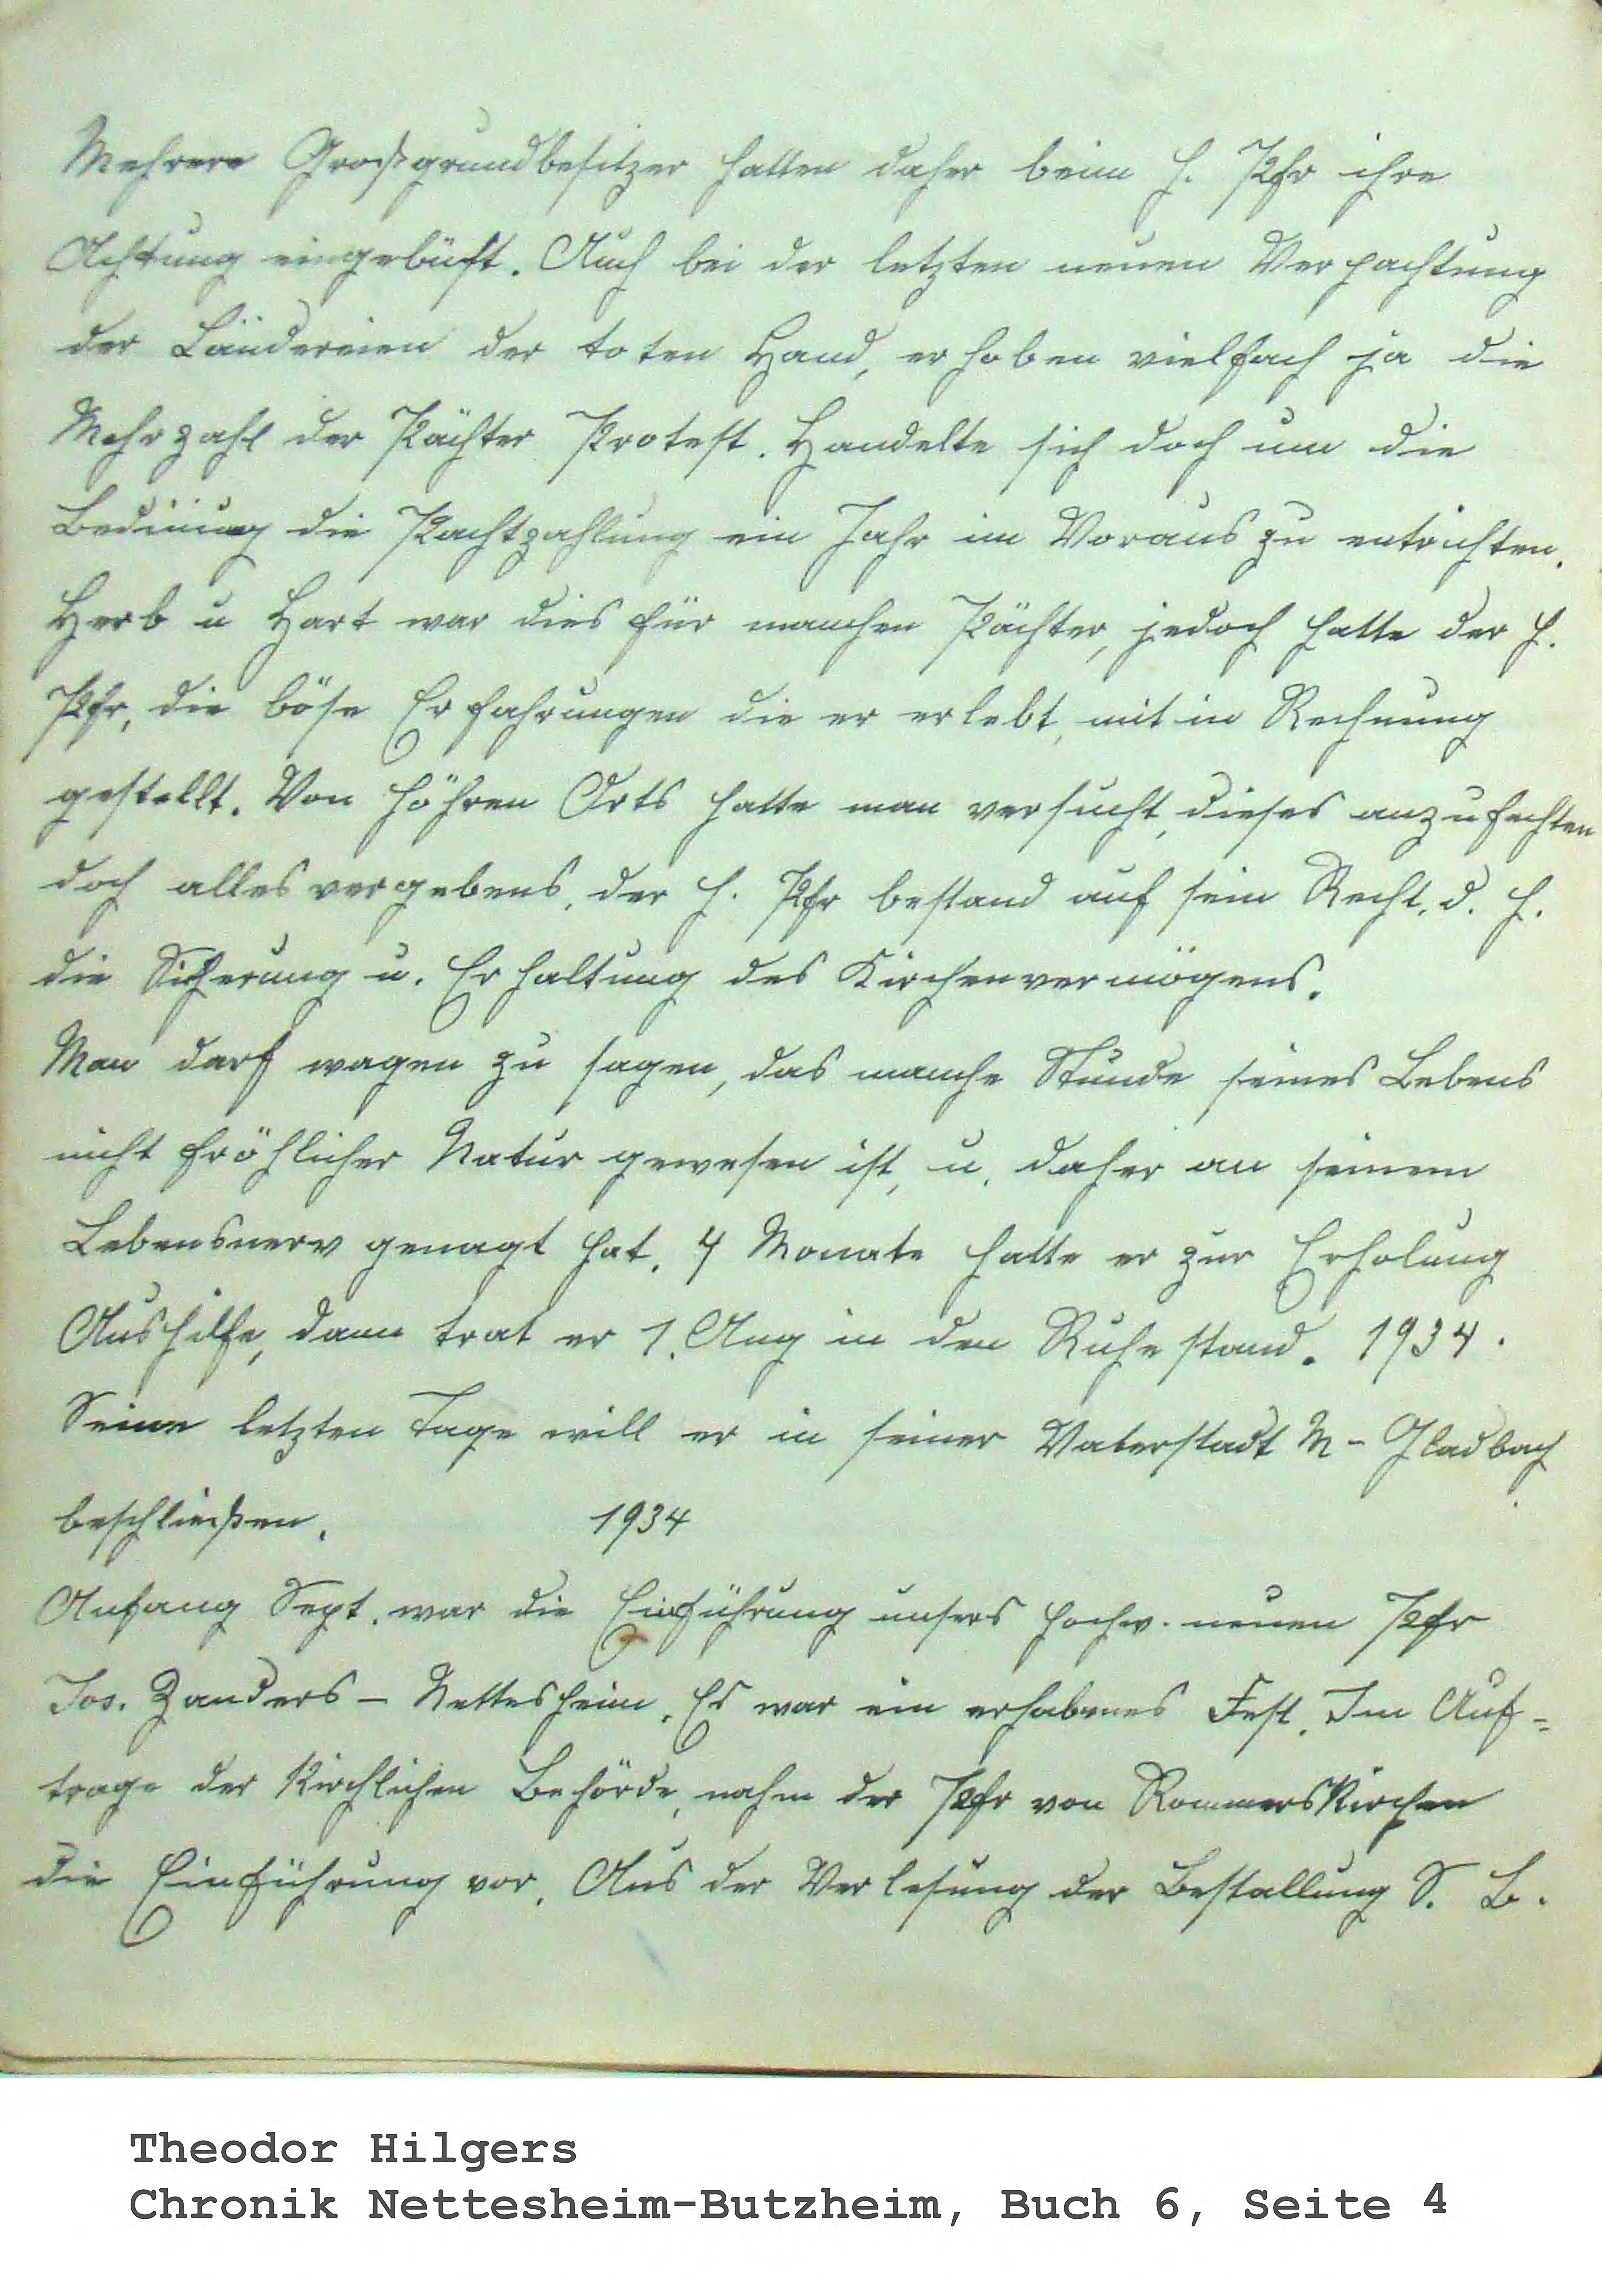 Mehrere Großgrundbesitzer hatten daher beim H. Pfr ihre
Achtung eingebüßt. Auch bei der letzten neuen Verpachtung
der Ländereien der toten Hand, erhoben vielfach ja die
Mehrzahl der Pächter Protest. Handelte sich doch um die
Bedinung die Pachtzahlung ein Jahr im Voraus zu entrichten.
Herb u Hart war dies für manchen Pächter, jedoch hatte der H.
Pfr, die böse Erfahrungen die er erlebt, mit in Rechnung
gestellt. Von höhren Orts hatte man versucht, dieses anzufechten
doch alles vergebens, der H. Pfr bestand auf sein Recht, d. h.
die Sicherung u. Erhaltung des Kirchenvermögens.
Man darf wagen zu sagen, das manche Stunde seines Lebens
nicht fröhlicher Natur gewesen ist, u. daher an seinem
Lebensnerv genagt hat. 4 Monate hatte er zur Erholung
Aushilfe, dann trat er 1. Aug in den Ruhestand. 1934.
Seine letzten Tage will er in seiner Vaterstadt M-Gladbach
beschließen. 1934
Anfang Sept. war die Einführung unsers hochw. neuen Pfr
Jos. Zanders - Nettesheim. Es war ein erhabenes Fest. Im Auf=
trage der Kirchlichen Behörde, nahm der Pfr von Rommerskirchen
die Einführung vor. Aus der Verlesung der Bestallung S. B.
Theodor Hilgers
Chronik Nettesheim-Butzheim, Buch 6, Seite 4